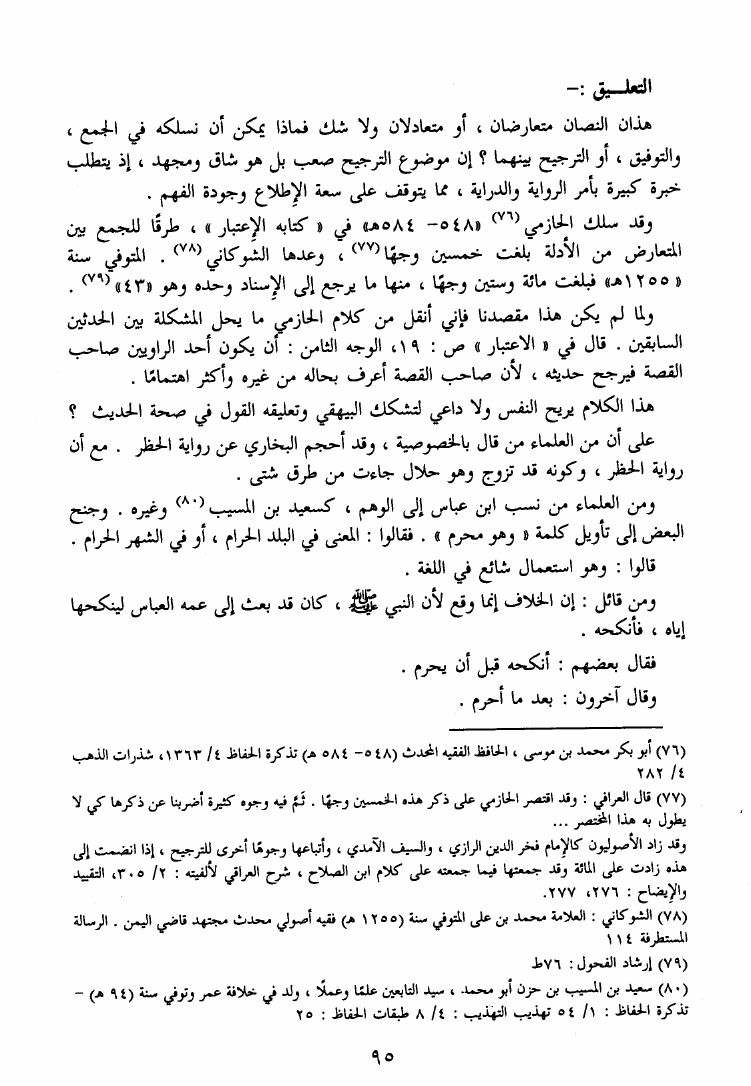 التعلــيق :–
هذان النصان متعارضان ، أو متعادلان ولا شك فماذا يمكن أن نسلكه في الجمع ،
والتوفيق ، أو الترجيح بينهما ؟ إن موضوع الترجيح صعب بل هو شاق ومجهد ، إذ يتطلب
خبرة كبيرة بأمر الرواية والدراية ، مما يتوقف على سعة الإطلاع وجودة الفهم .
وقد سلك الحازمي (٧٦) «٥٤٨– ٥٨٤هـ» في « كتابه الإعتبار » ، طرقًا للجمع بين
المتعارض من الأدلة بلغت خمسين وجهًا (٧٧) ، وعدها الشوكاني (٧٨) . المتوفي سنة
«١٢٥٥هـ» فبلغت مائة وستين وجهًا ، منها ما يرجع إلى الإسناد وحده وهو «٤٣» (٧٩) .
ولما لم يكن هذا مقصدنا فإني أنقل من كلام الحازمي ما يحل المشكلة بين الحدثين
السابقين . قال في « الاعتبار » ص : ١٩، الوجه الثامن : أن يكون أحد الراويين صاحب
القصة فيرجح حديثه ، لأن صاحب القصة أعرف بحاله من غيره وأكثر اهتمامًا .
هذا الكلام يريح النفس ولا داعي لتشكك البيهقي وتعليقه القول في صحة الحديث ؟
على أن من العلماء من قال بالخصوصية ، وقد أحجم البخاري عن رواية الحظر . مع أن
رواية الحظر ، وكونه قد تزوج وهو حلال جاءت من طرق شتى .
ومن العلماء من نسب ابن عباس إلى الوهم ، كسعيد بن المسيب (٨٠) وغيره . وجنح
البعض إلى تأويل كلمة « وهو محرم » . فقالوا : المعنى في البلد الحرام ، أو في الشهر الحرام .
قالوا : وهو استعمال شائع في اللغة .
ومن قائل : إن الخلاف إنما وقع لأن النبي ﷺ ، كان قد بعث إلى عمه العباس لينكحها
إياه ، فأنكحه .
فقال بعضهم : أنكحه قبل أن يحرم .
وقال آخرون : بعد ما أحرم .
(٧٦) أبو بكر محمد بن موسى ، الحافظ الفقيه المحدث (٥٤٨– ٥٨٤ هـ) تذكرة الحفاظ ٤/ ١٣٦٣، شذرات الذهب
٤/ ٢٨٢
(٧٧) قال العرافي : وقد اقتصر الحازمي على ذكر هذه الخمسين وجهًا . ثَمَّ فيه وجوه كثيرة أضربنا عن ذكرها كي لا
يطول به هذا المختصر ...
وقد زاد الأصوليون كالإمام فخر الدين الرازي ، والسيف الآمدي ، وأتباعها وجوهًا أخرى للترجيح ، إذا انضمت إلى
هذه زادت على المائة وقد جمعتها فيما جمعته على كلام ابن الصلاح ، شرح العراقي لألفيته : ٢/ ٣٠٥، التقييد
والإيضاح : ٢٧٦، ٢٧٧.
(٧٨) الشوكاني : العلامة محمد بن على المتوفي سنة (١٢٥٥ هـ) فقيه أصولي محدث مجتهد قاضي اليمن . الرسالة
المستطرفة ١١٤
(٧٩) إرشاد الفحول : ٧٦ط
(٨٠) سعيد بن المسيب بن حزن أبو محمد ، سيد التابعين علمًا وعملًا ، ولد في خلافة عمر وتوفي سنة (٩٤ هـ) –
تذكرة الحفاظ : ١/ ٥٤ تهذيب التهذيب : ٤/ ٨ طبقات الحفاظ : ٢٥
٩٥